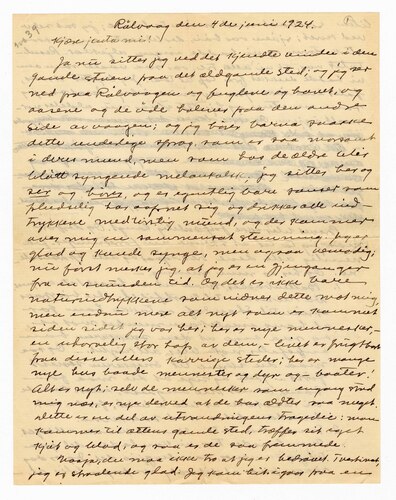 Rölvaag den 4de juni 1924.
Kjære jenta mi!
Ja nu sitter jeg ved det kjendte vindu i den
gamle stuen paa det ældgamle sted; og jeg ser
ned paa Rölvaagen og fuglene og havet, og
aasene og de vide balmer paa den andre
side av vaagen; og jeg hörer barna snakke
dette underlige sprog, som er saa morsomt
i deres mund, men som hos de ældre blir
blött syngende melankolsk. jeg sitter her og
ser og hörer, og er egentlig bare sanser som
pludselig har aapnet sig og drikker alle ind-
trykkene med törstig mund, og der kommer
over mig en sammensat stemning. jeg er
glad og kunde synge, men ogsaa vemodig;
nu först merker jeg, at jeg er en gjenganger
fra en svunden tid. Og det er ikke bare
naturindtrykkene som virker dette mot mig,
men endnu mere alt nyt som er kommet
siden sidst jeg var her; her er nye mennesker,—
en uhorvelig stor hop av dem,— livet er frugtbart
paa disse ellers karrige steder; her er mange
nye hus baade mennesker og dyr og baater!
Alt er nyt; selv de mennesker som engang stod
mig nær, er nye derved at de har ældtes saa meget.
dette er en del av utvandringens tragedie: man
kommer til ættens gamle sted, træffer sit eget
kjöt og blod, og saa er de saa fremmede.
Naaja, du maa ikke tro at jeg er bedrövet. Tvertimot,
jeg er straalende glad. Jeg kom hit igaar paa en